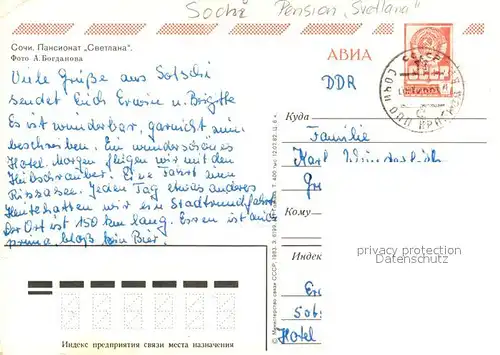 Sochi Pension "Svetlana"
Сочи. Пансионат "Светлана".
Фото А. Богданова
АВИА
DDR
Viele Grüße aus Sotschi
sendet Euch Erwin u. Brigitte
Es ist wunderbar, garnicht zum
beschreiben. Ein wunderschönes
Hotel. Morgen fliegen wir mit den
Hubschrauber. Eine Fahrt zum
Rizzasee. Jeden Tag etwas anderes
Heute hatten wir eine Stadtrundfahrt
der Ort ist 150 km lang. Essen ist auch
prima bloß kein Bier.
Куда
Familie
Karl
Кому
Индек
privacy protection
Datenschutz
Er
Sot
Hotel
© Министерство связи СССР, 1983.
Индекс предприятия связи места назначения